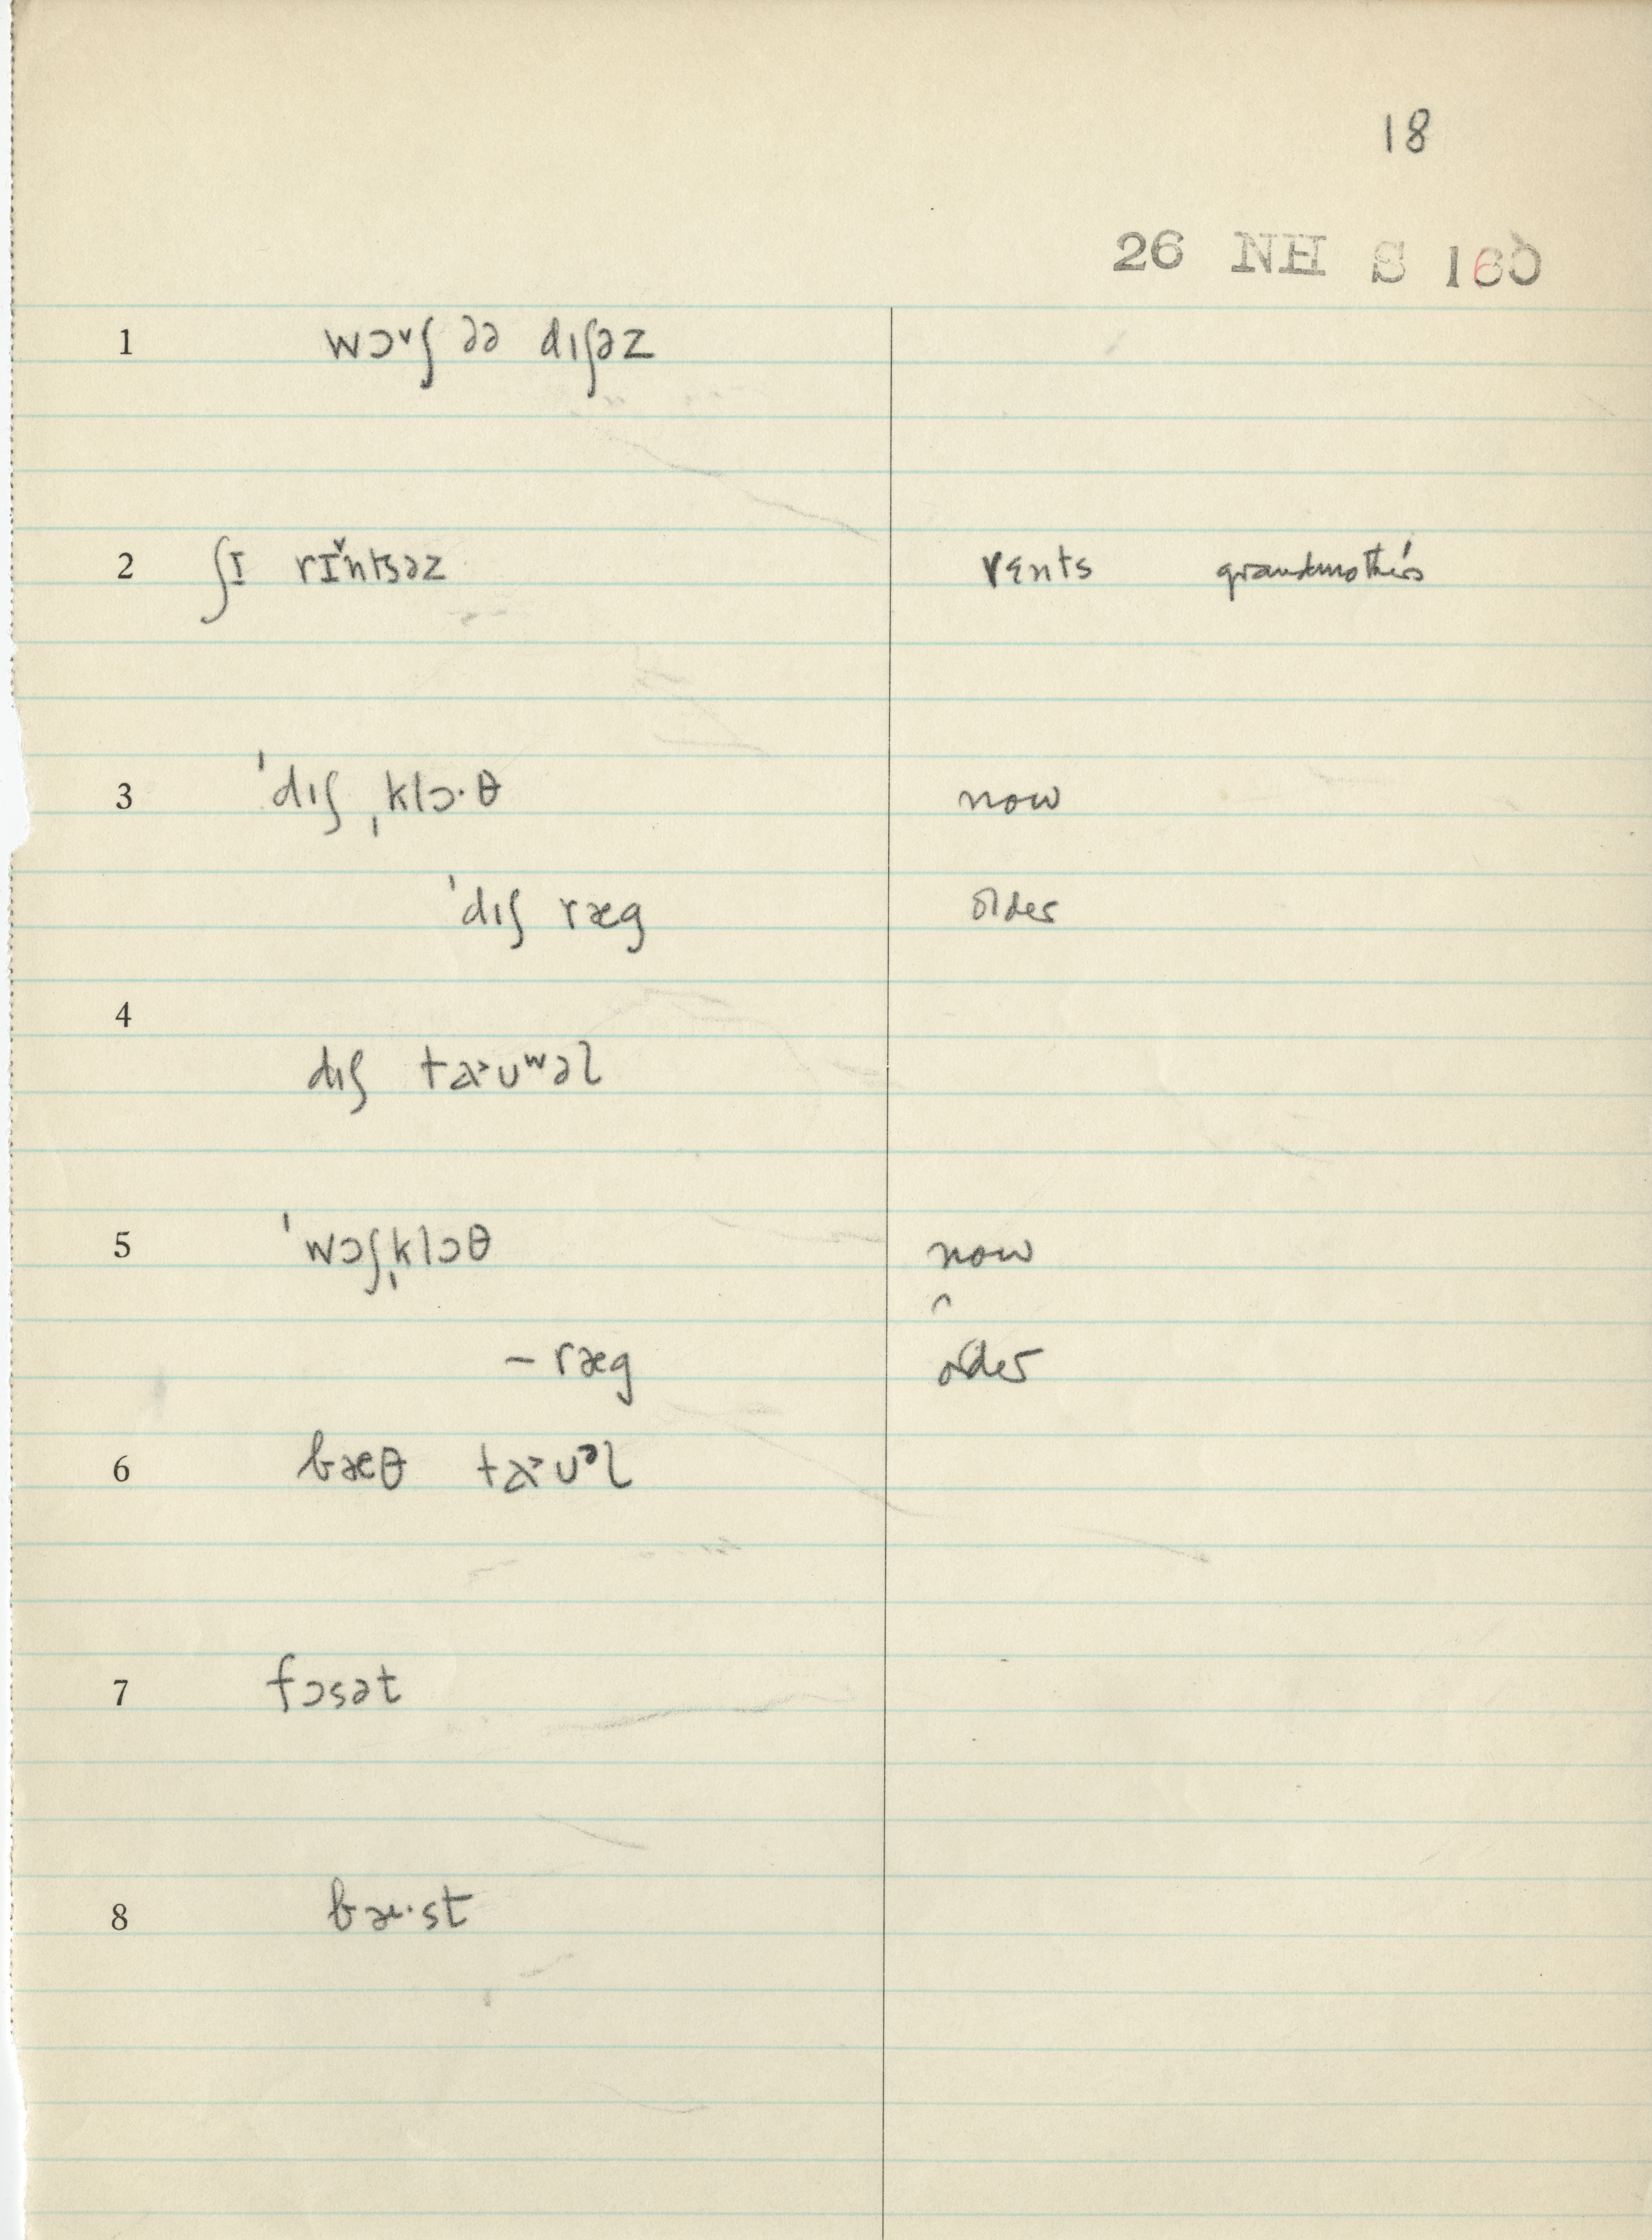 18
26 NH S 160
1 wɔ˅ʃ ðə dɪʃəz
2 ʃɪ rɪ̌ntsəz rɛnts grandmother's
3 ˈdɪʃ ˌklɔ·θ now
ˈdɪʃ ræg older
4
dɪʃ taʊʷəl
5 ˈwɔʃˌklɔθ now
– ræg older
6 bæθ taʊᵊl
7 fɔsət
8 st